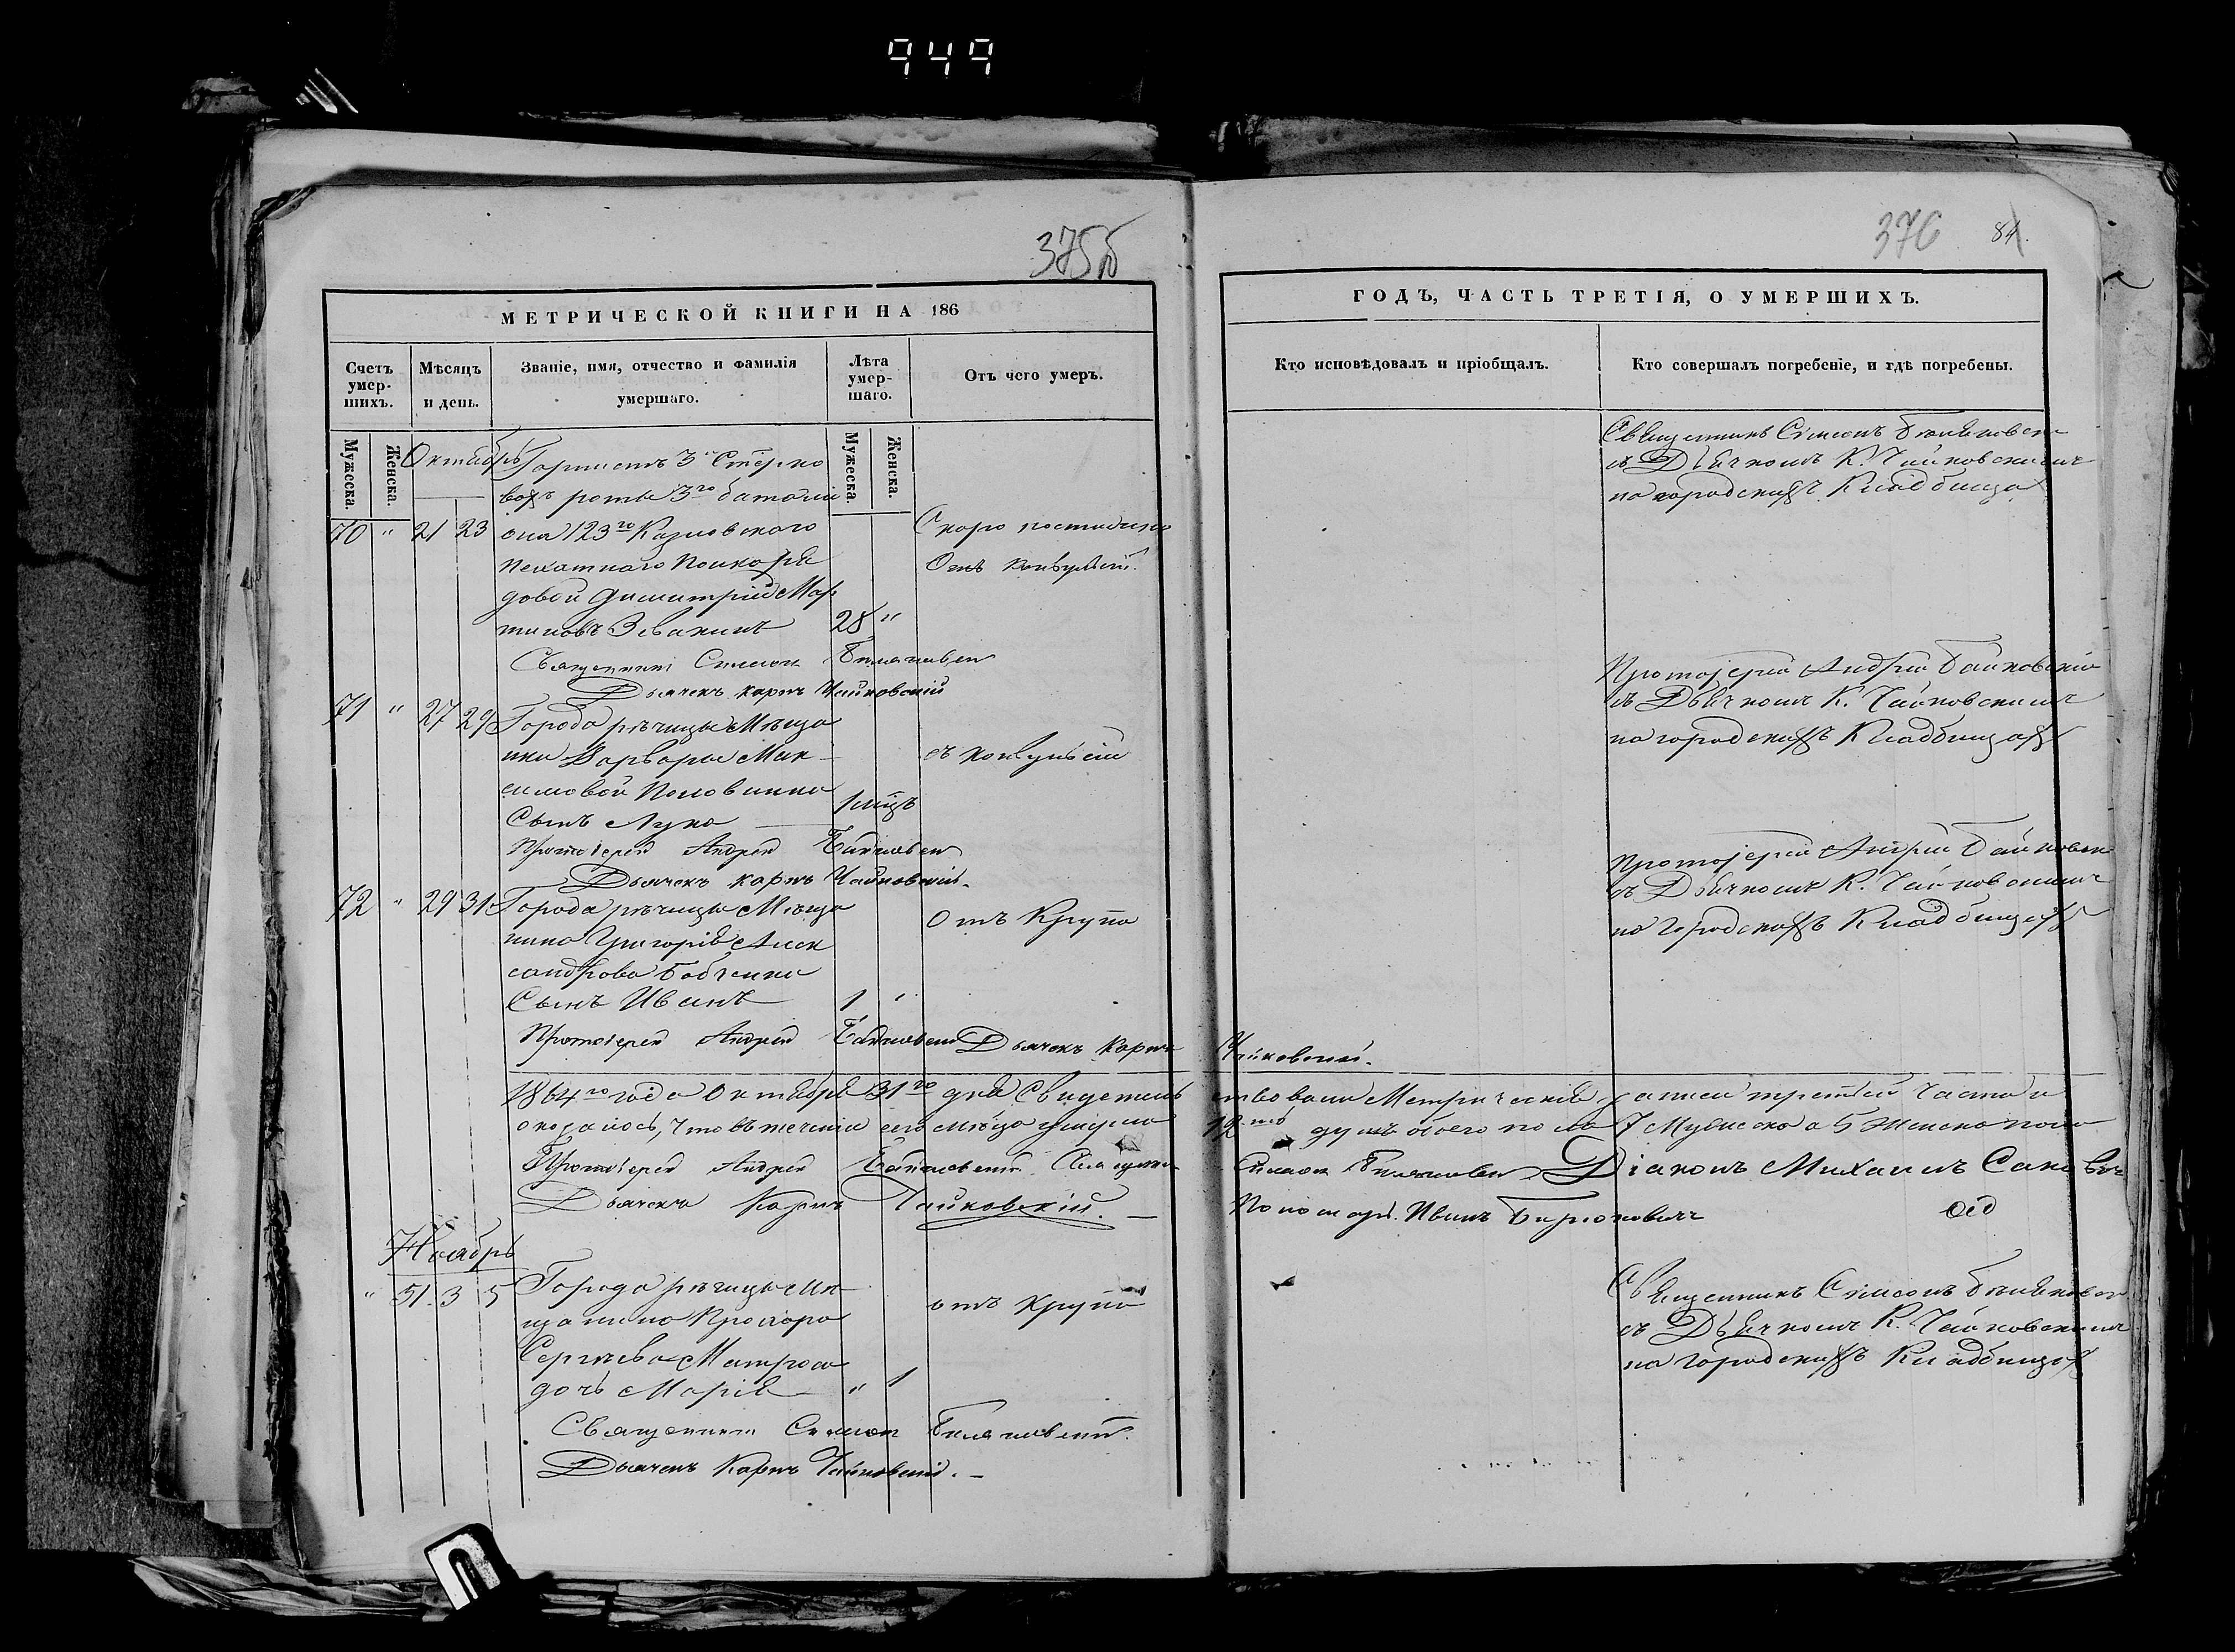 949
375б
376
84
МЕТРИЧЕСКОЙ КНИГИ НА 186
ГОДЪ, ЧАСТЬ ТРЕТІЯ, О УМЕРШИХЪ.
Счетъ умер-
шихъ.
Мѣсяцъ
и день.
Званіе, имя, отчество и фамилія
умершаго.
Лѣта
умер-
шаго.
Отъ чего умеръ.
Кто исповѣдовалъ и пріобщалъ.
Кто совершалъ погребеніе, и гдѣ погребены.
Мужеска.
Женска.
Мужеска.
Женска.
Октябрь
3
роты 3го баталі
70 " 21 23 она 123го Козловского
пехатнаго
довой Димитрій Мар
тиновъ 28 "
Скоро постижно
Отъ
Священникъ Симеонъ
Дьячекъ Карпъ Чайковскій
Священникъ Симеонъ
съ Дьячкомъ К. Чайковскимъ
на городскихъ Кладбища
71 " 27 29 Города рѣчицы Мѣща
нки Варвары Мак-
симовой Половинки
Сынъ Лука 1 мцъ
съ конвульсіи
Протоіерей Андрей
Дьячекъ Карпъ Чайковскій
Протоіерей Андрей
съ Дьячкомъ К. Чайковскимъ
на городскихъ Кладбищахъ
72 " 29 31 Города рѣчицы Мѣща
нина Григорія Алек
сандрова Бобченки
Сынъ Иванъ 1 "
Отъ Крупа
Протоіерей Андрей Дьячекъ Карпъ Чайковскій.
Протоіерей Андрей
съ Дьячкомъ К. Чайковскимъ
на Городскихъ Кладбищахъ
1864го года Октября 31го дня Свидетельствовали Метрическія записи третьей Части и
оказалось, что въ теченіи сего мѣца умерло 12ть душъ обоего пола 7 Мужеска а 5 Женска пола
Протоіерей Андрей Священникъ Симеонъ Діаконъ Михаилъ
Дьячекъ Карпъ Чайковскій. Пономарь Иванъ Бирюковичъ
Ноябрь
" 51 3 5 Города рѣчицы Мѣ-
щанина Прохора
Сергѣева
дочь Марія " 1
отъ Крупа
Священникъ Симеонъ
Дьячекъ Карпъ Чайковскій.
Священникъ Симеонъ
съ Дьячкомъ К. Чайковскимъ
на Городскихъ Кладбищахъ